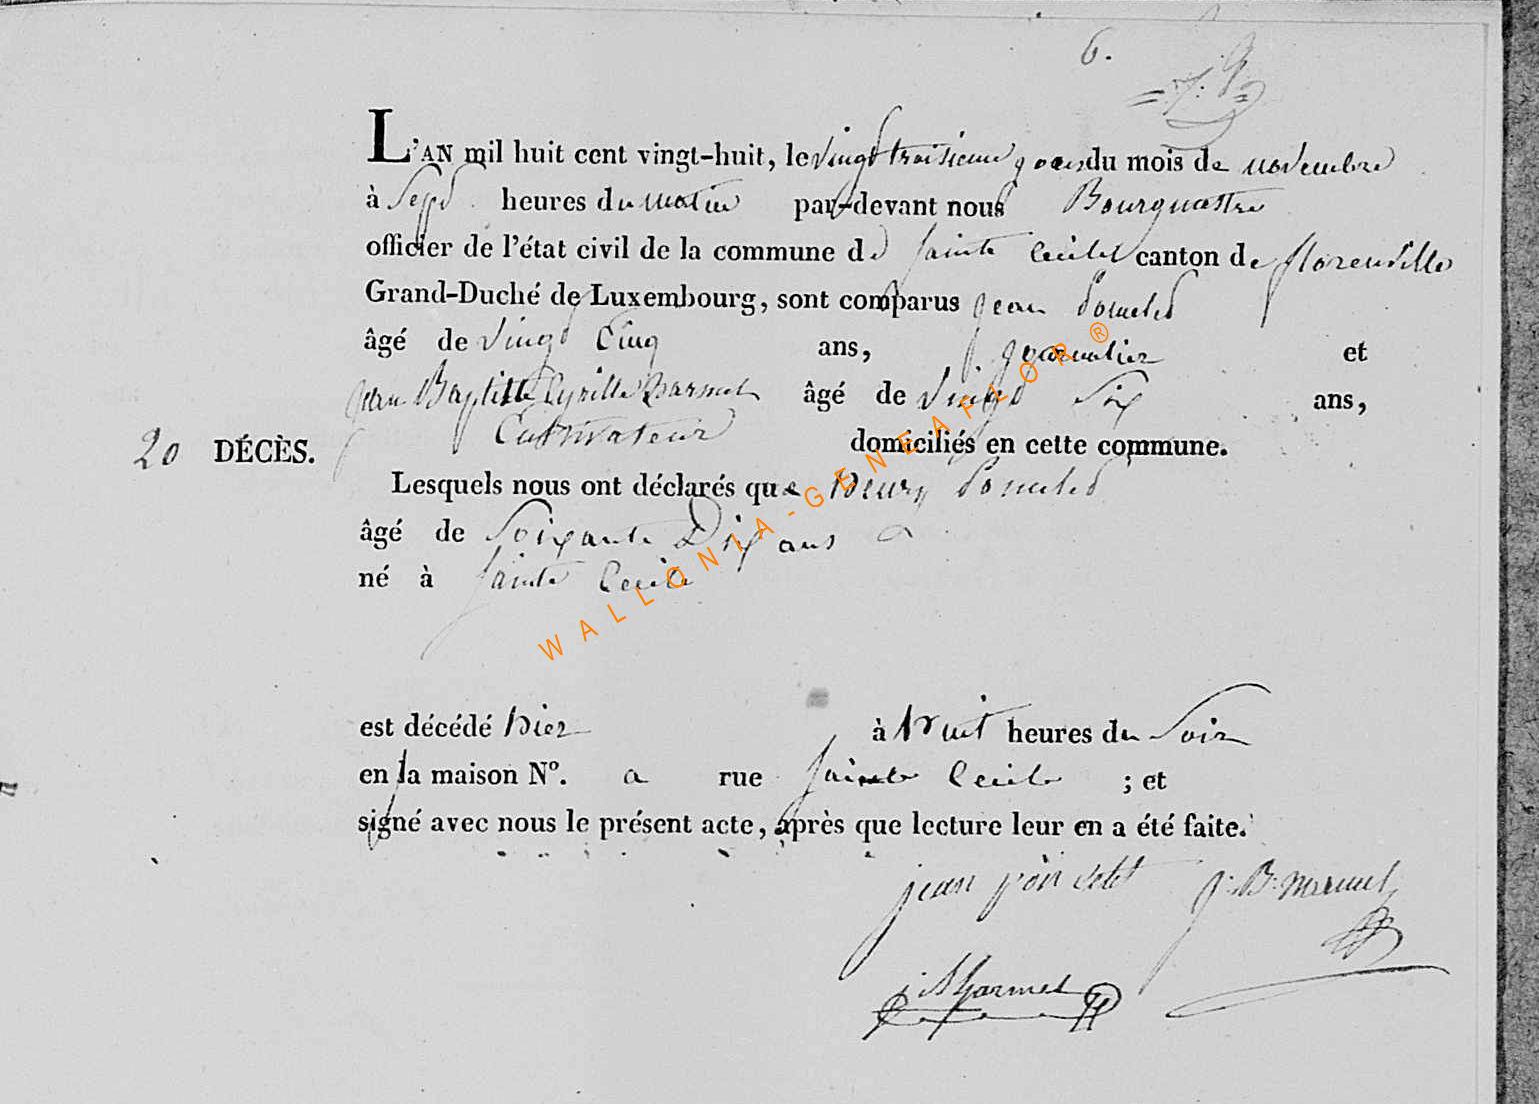 6.
L'AN mil huit cent vingt-huit, le vingt troisieme jour du mois de novembre
à Sept heures du matin par-devant nous Bourgmestre
officier de l'état civil de la commune de Sainte Cecile canton de florenville
Grand-Duché de Luxembourg, sont comparus jean
âgé de vingt Cinq ans, journalier et
jean Baptiste Cyrille Marmet âgé de vingt Six ans,
Cultivateur domiciliés en cette commune.
20 DÉCÈS.
Lesquels nous ont déclarés que henry
âgé de Soixante Dix ans
né à Sainte Cecile
est décédé hier à huit heures du Soir
en la maison N°. a rue Sainte Cecile ; et
signé avec nous le présent acte, après que lecture leur en a été faite.
jean J: B: marmet
Marmet
WALLONIA-GENEAFLOR ®